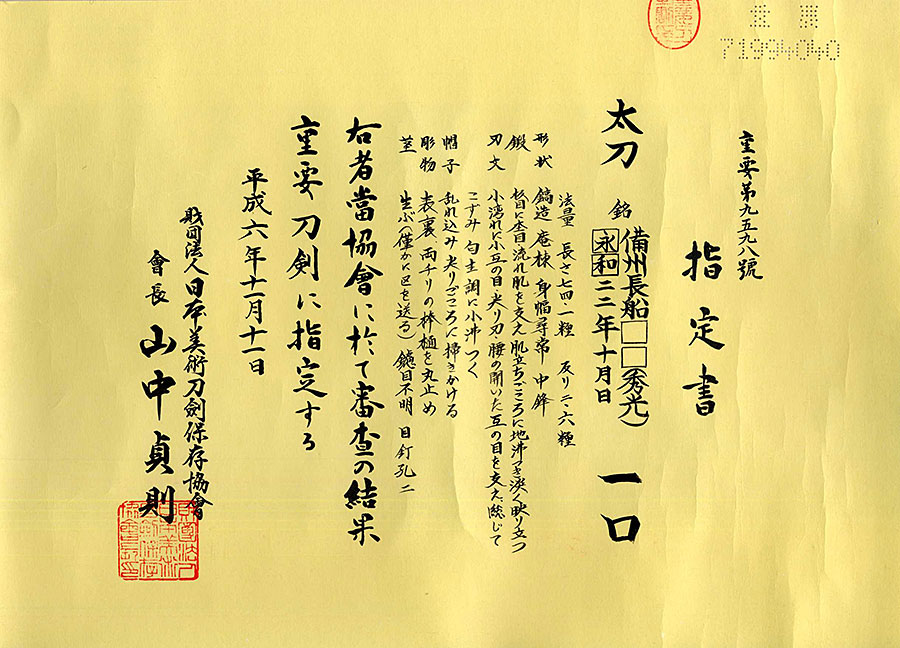 71994040
重要第九五九八號
指定書
太刀 銘 備州長船□□(秀光)
永和二二年十月日 一口
法量 長さ七四・一糎 反り二・六糎
形状 鎬造 庵棟 身幅尋常 中鋒
鍛 板目に杢目、流れ肌を交え、肌立ちごころに地沸つき、淡く映り立つ
刃文 小湾れに小互の目・尖り刃、腰の開いた互の目を交え、総じて
こずみ 匂主調に小沸つく
帽子 乱れ込み 尖りごころに掃きかける
彫物 表裏両チリの棒樋を丸止め
茎 生ぶ(僅かに区を送る) 鑢目不明 目釘孔二
右者當協會に於て審査の結果
重要刀剣に指定する
平成六年十一月十一日
財団法人日本美術刀劍保存協會
會長 山中貞則